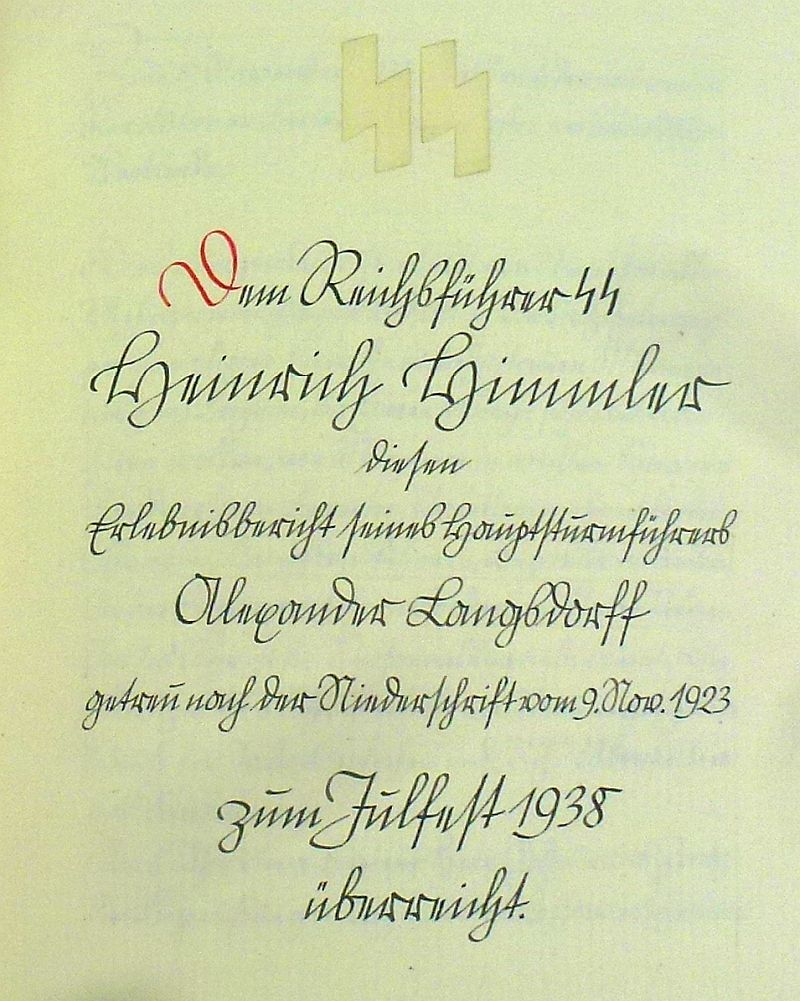 SS
Dem Reichsführer SS
Heinrich Himmler
diesen
Erlebnisbericht seines Hauptsturmführers
Alexander Langsdorff
getreu nach der Niederschrift vom 9. Nov. 1923
zum Julfest 1938
überreicht.